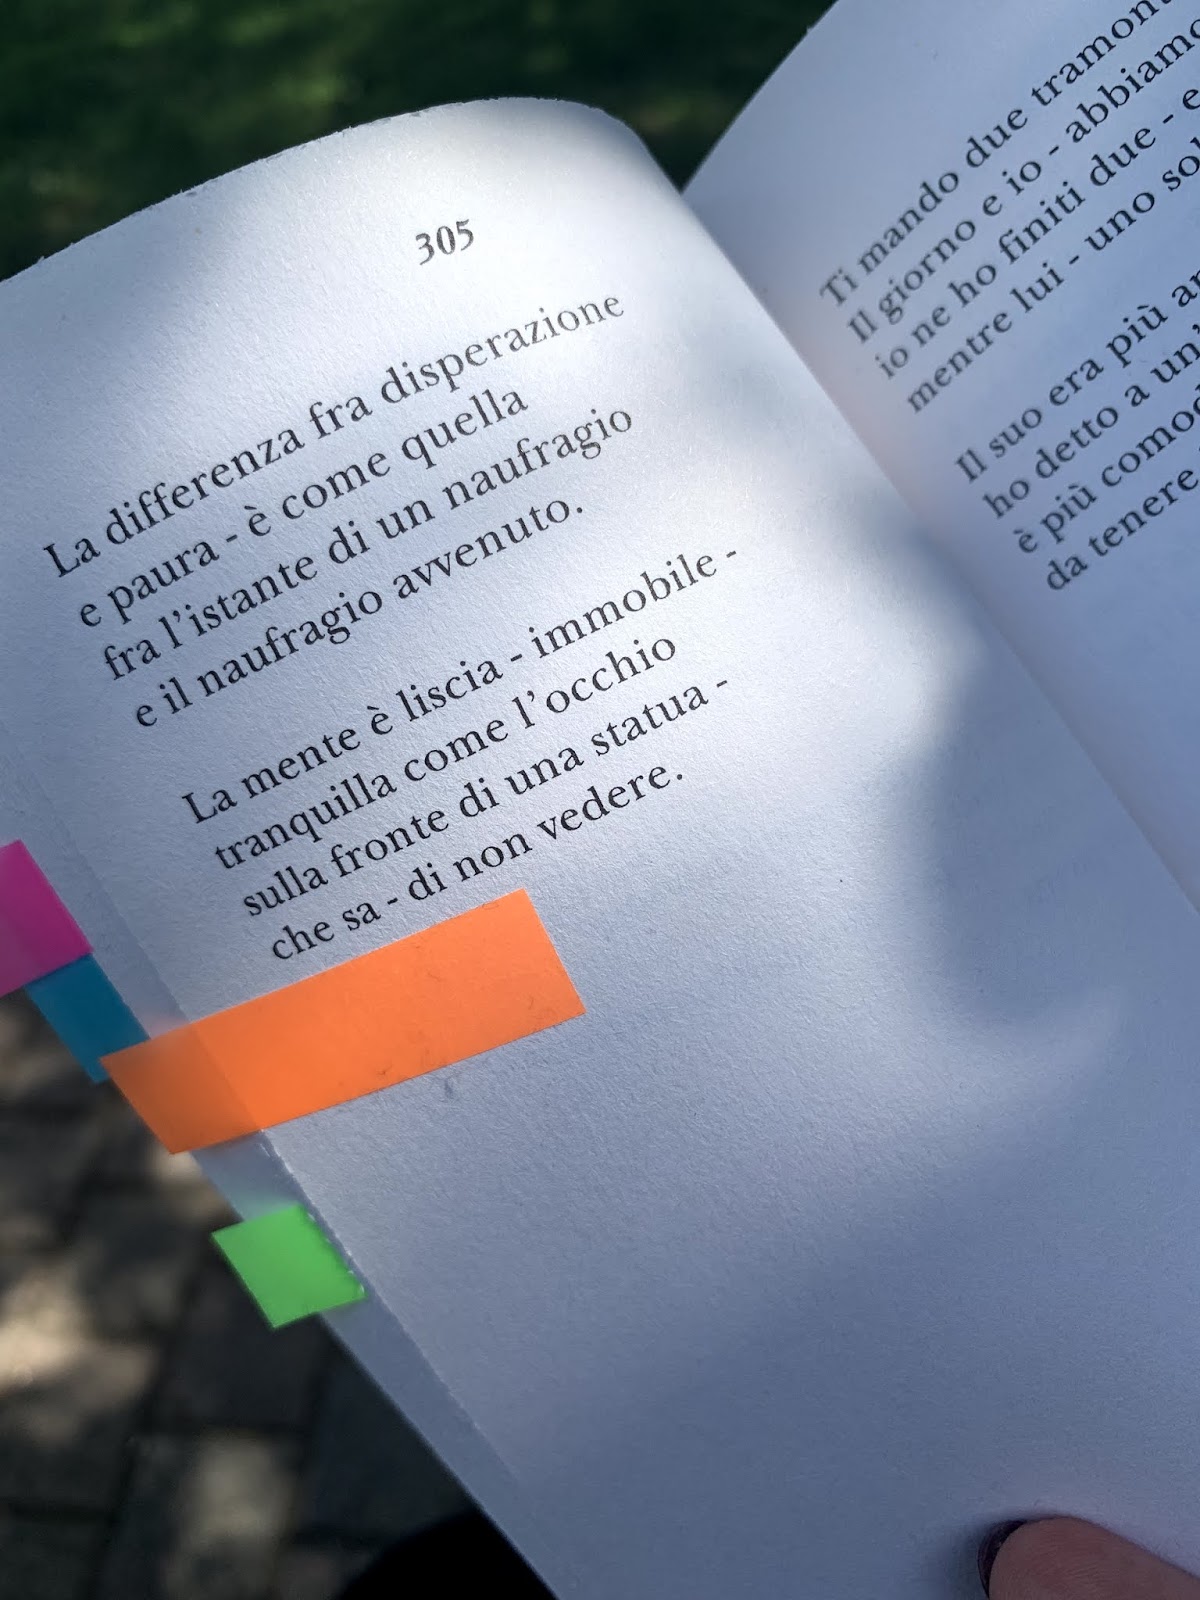 305
La differenza fra disperazione
e paura - è come quella
fra l'istante di un naufragio
e il naufragio avvenuto.
La mente è liscia - immobile -
tranquilla come l'occhio
sulla fronte di una statua -
che sa - di non vedere.
Ti mando due
Il giorno e io - abbiamo
io ne ho finiti due - e
mentre lui - uno
Il suo era più
ho detto a
è più
da tenere